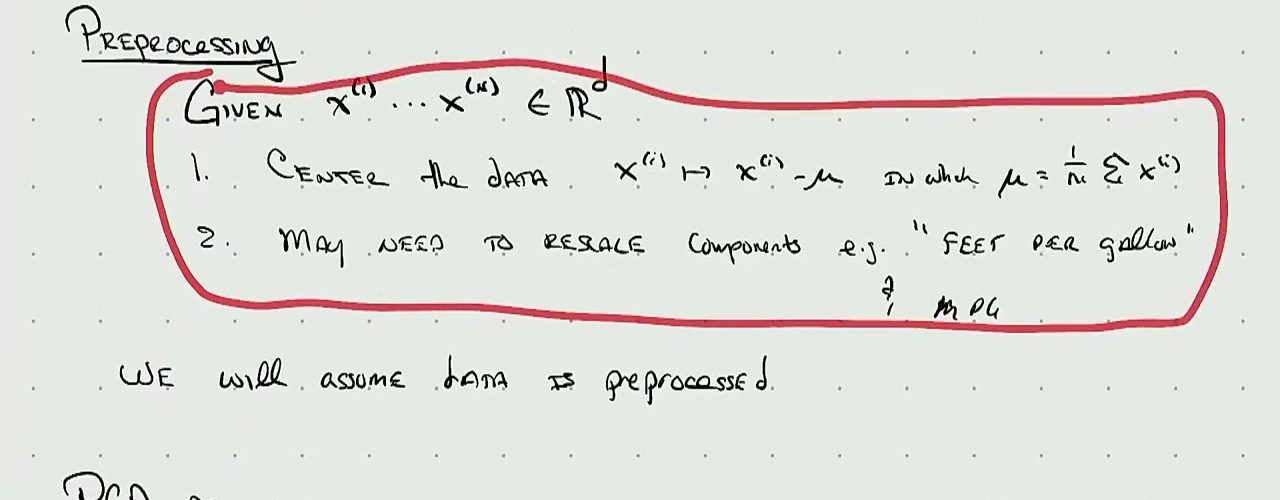 PREPROCESSING
GIVEN x^(1) ... x^(n) ∈ ℝ^d
1. CENTER the DATA x^(i) ↦ x^(i) - μ IN which μ = 1/n Σ x^(i)
2. MAY NEED TO RESCALE Components e.g. "FEET PER gallon"
& MPG
WE will assume DATA IS preprocessed.
PCA